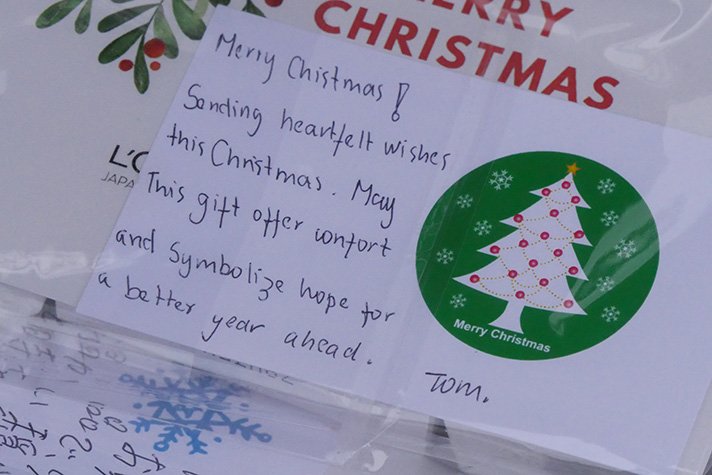 MERRY
CHRISTMAS
Merry Chistmas!
Sending heartfelt wishes
this Christmas. May
This gift offer confort
and Symbolize hope for
a better year ahead.
Merry Christmas
Tom.
L'O
JAPA